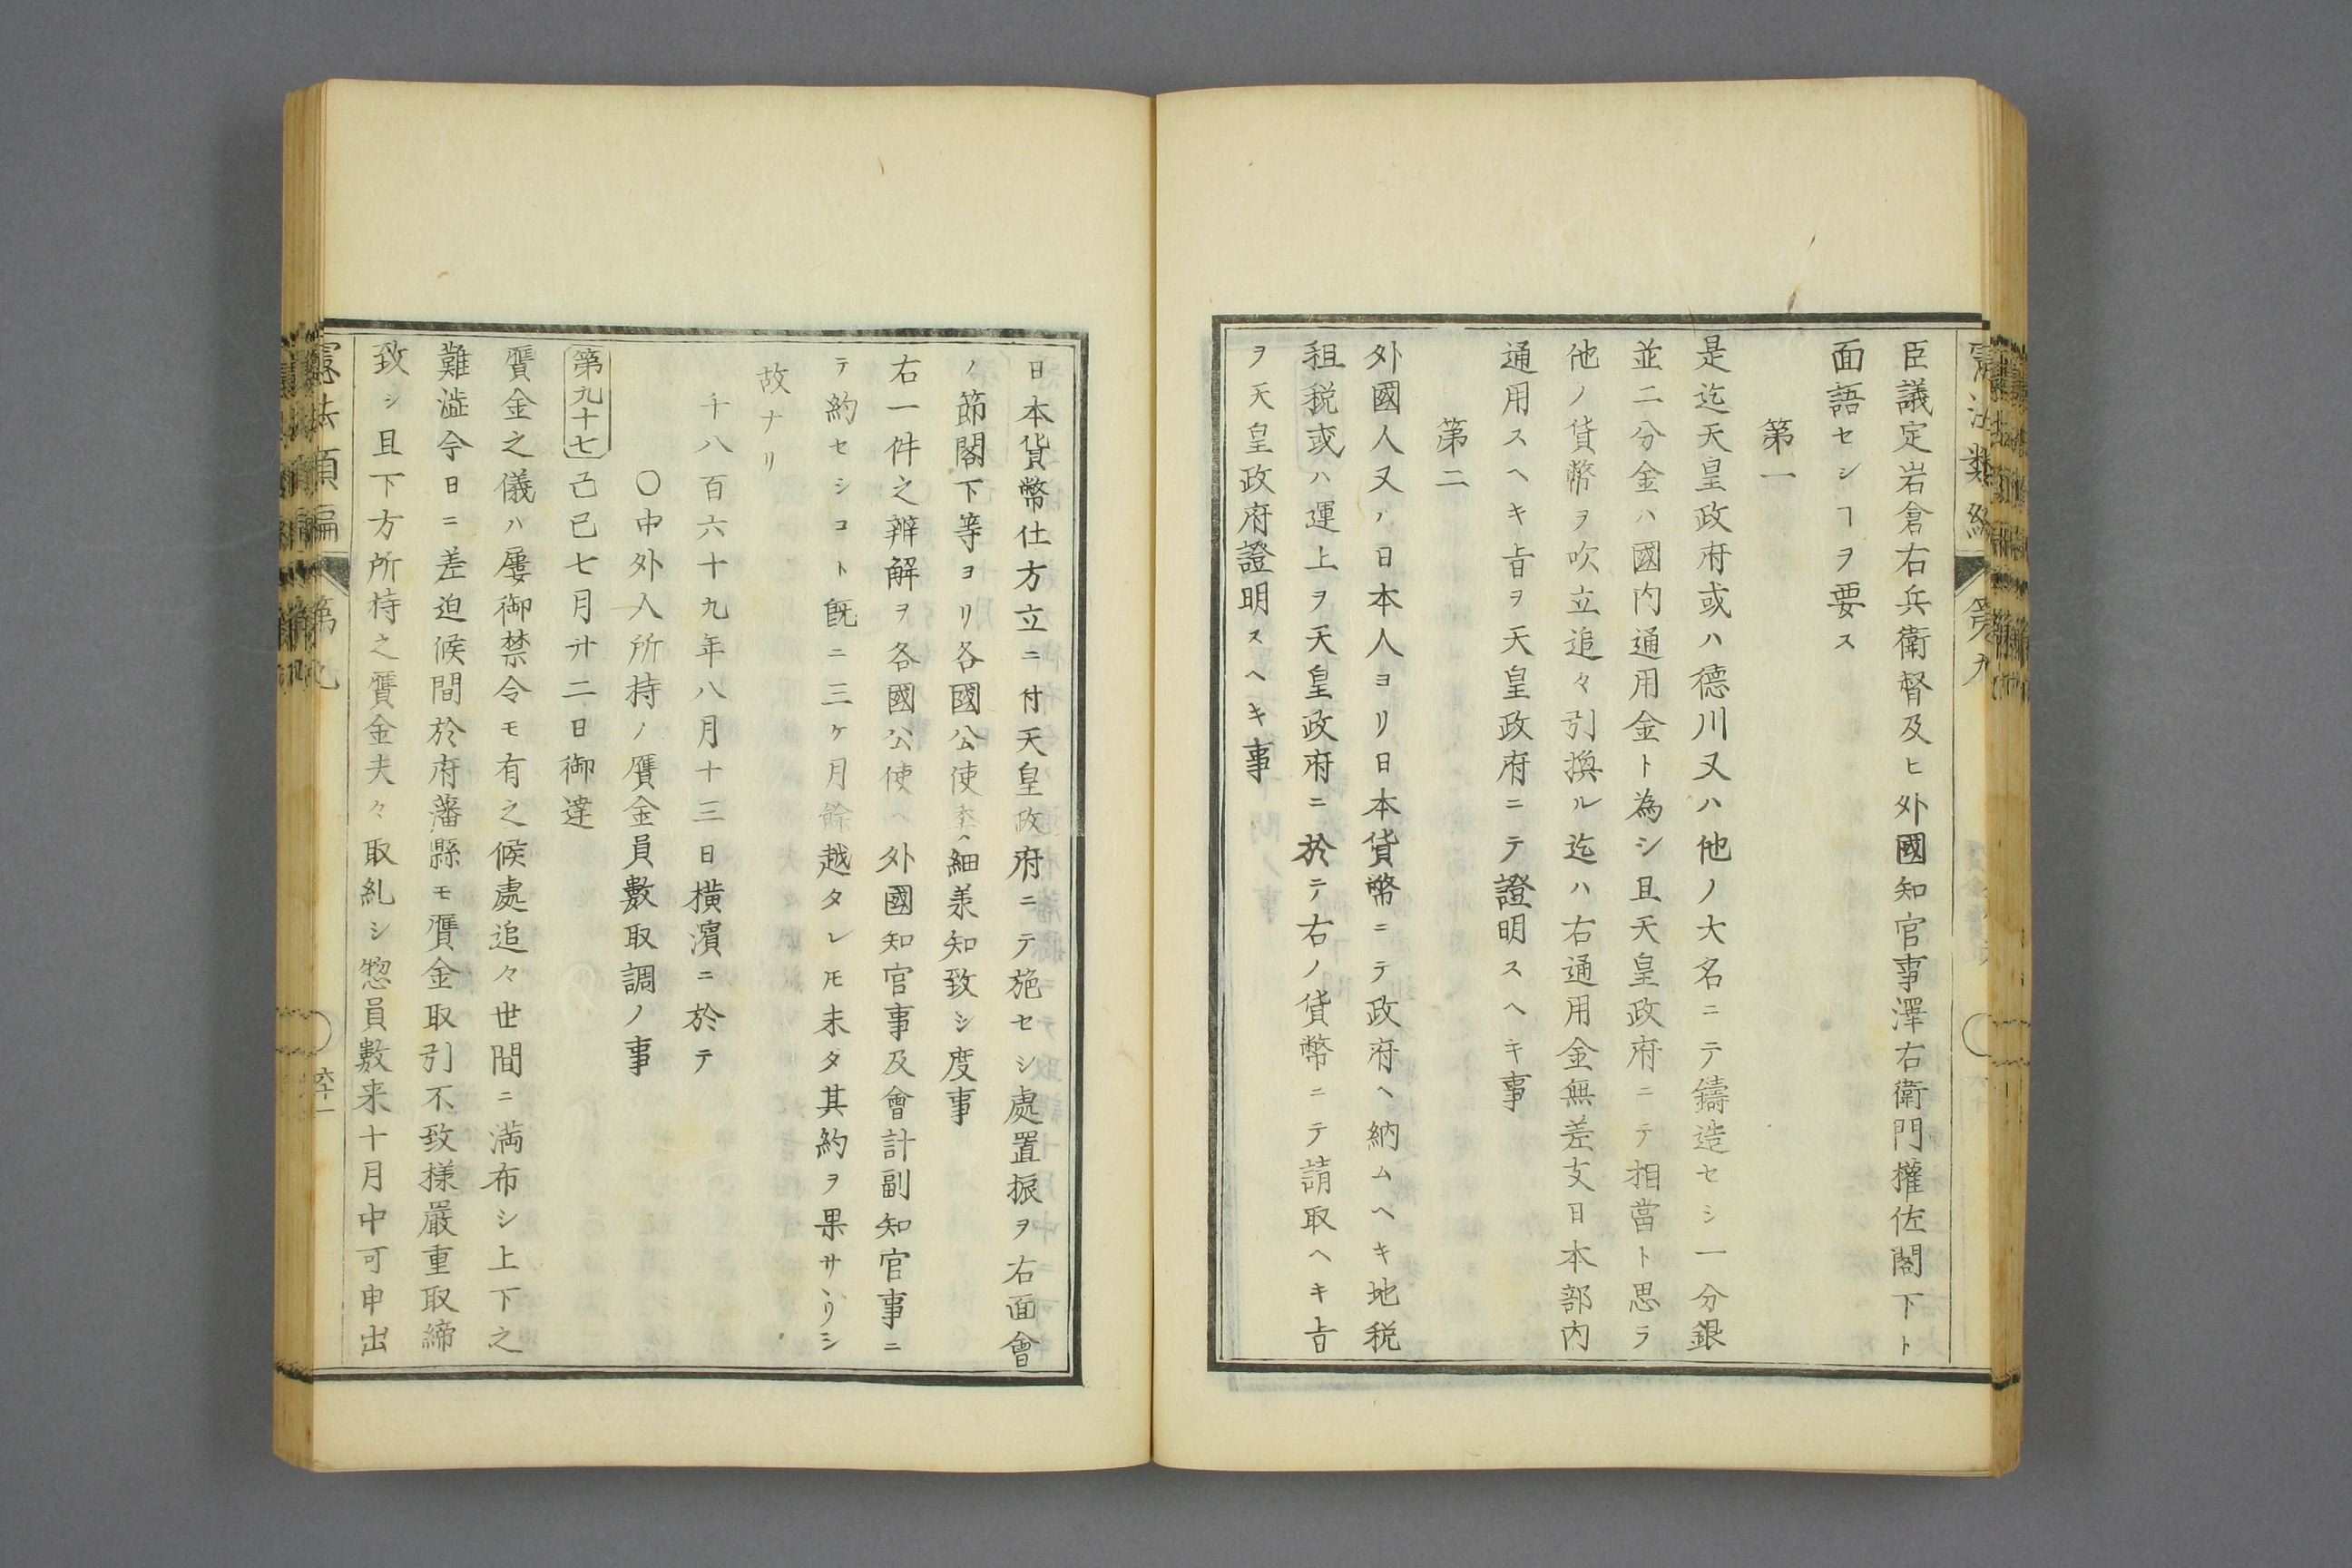 臣議定岩倉右兵衛督及ヒ外國知官事澤右衛門權佐閣下ト
面語セシヿヲ要ス
第一
是迄天皇政府或ハ德川又ハ他ノ大名ニテ鑄造セシ一分銀
並二分金ハ國内通用金ト為シ且天皇政府ニテ相當ト思ラ
他ノ貨幣ヲ吹立追々引換ル迄ハ右通用金無差支日本部内
通用スヘキ旨ヲ天皇政府ニテ證明スヘキ事
第二
外國人又ハ日本人ヨリ日本貨幣ニテ政府ヘ納ムヘキ地税
租税或ハ運上ヲ天皇政府ニ於テ右ノ貨幣ニテ請取ヘキ旨
ヲ天皇政府證明スヘキ事
日本貨幣仕方立ニ付天皇政府ニテ施セシ處置振ヲ右面會
ノ節閣下等ヨリ各國公使ヘ委細承知致シ度事
右一件之辨解ヲ各國公使ヘ外國知官事及會計副知官事ニ
テ約セシコト既ニ三ケ月餘越タレ𪜈未タ其約ヲ果サヽリシ
故ナリ
千八百六十九年八月十三日横濱ニ於テ
〇中外人所持ノ贋金員數取調ノ事
第九十七 己巳七月廿二日御達
贋金之儀ハ屢御禁令モ有之候處追々世間ニ満布シ上下之
難澁今日ニ差迫候間於府藩縣モ贋金取引不致様嚴重取締
致シ且下方所持之贋金夫々取糺シ惣員數来十月中可申出
憲法類編 第九 六十一